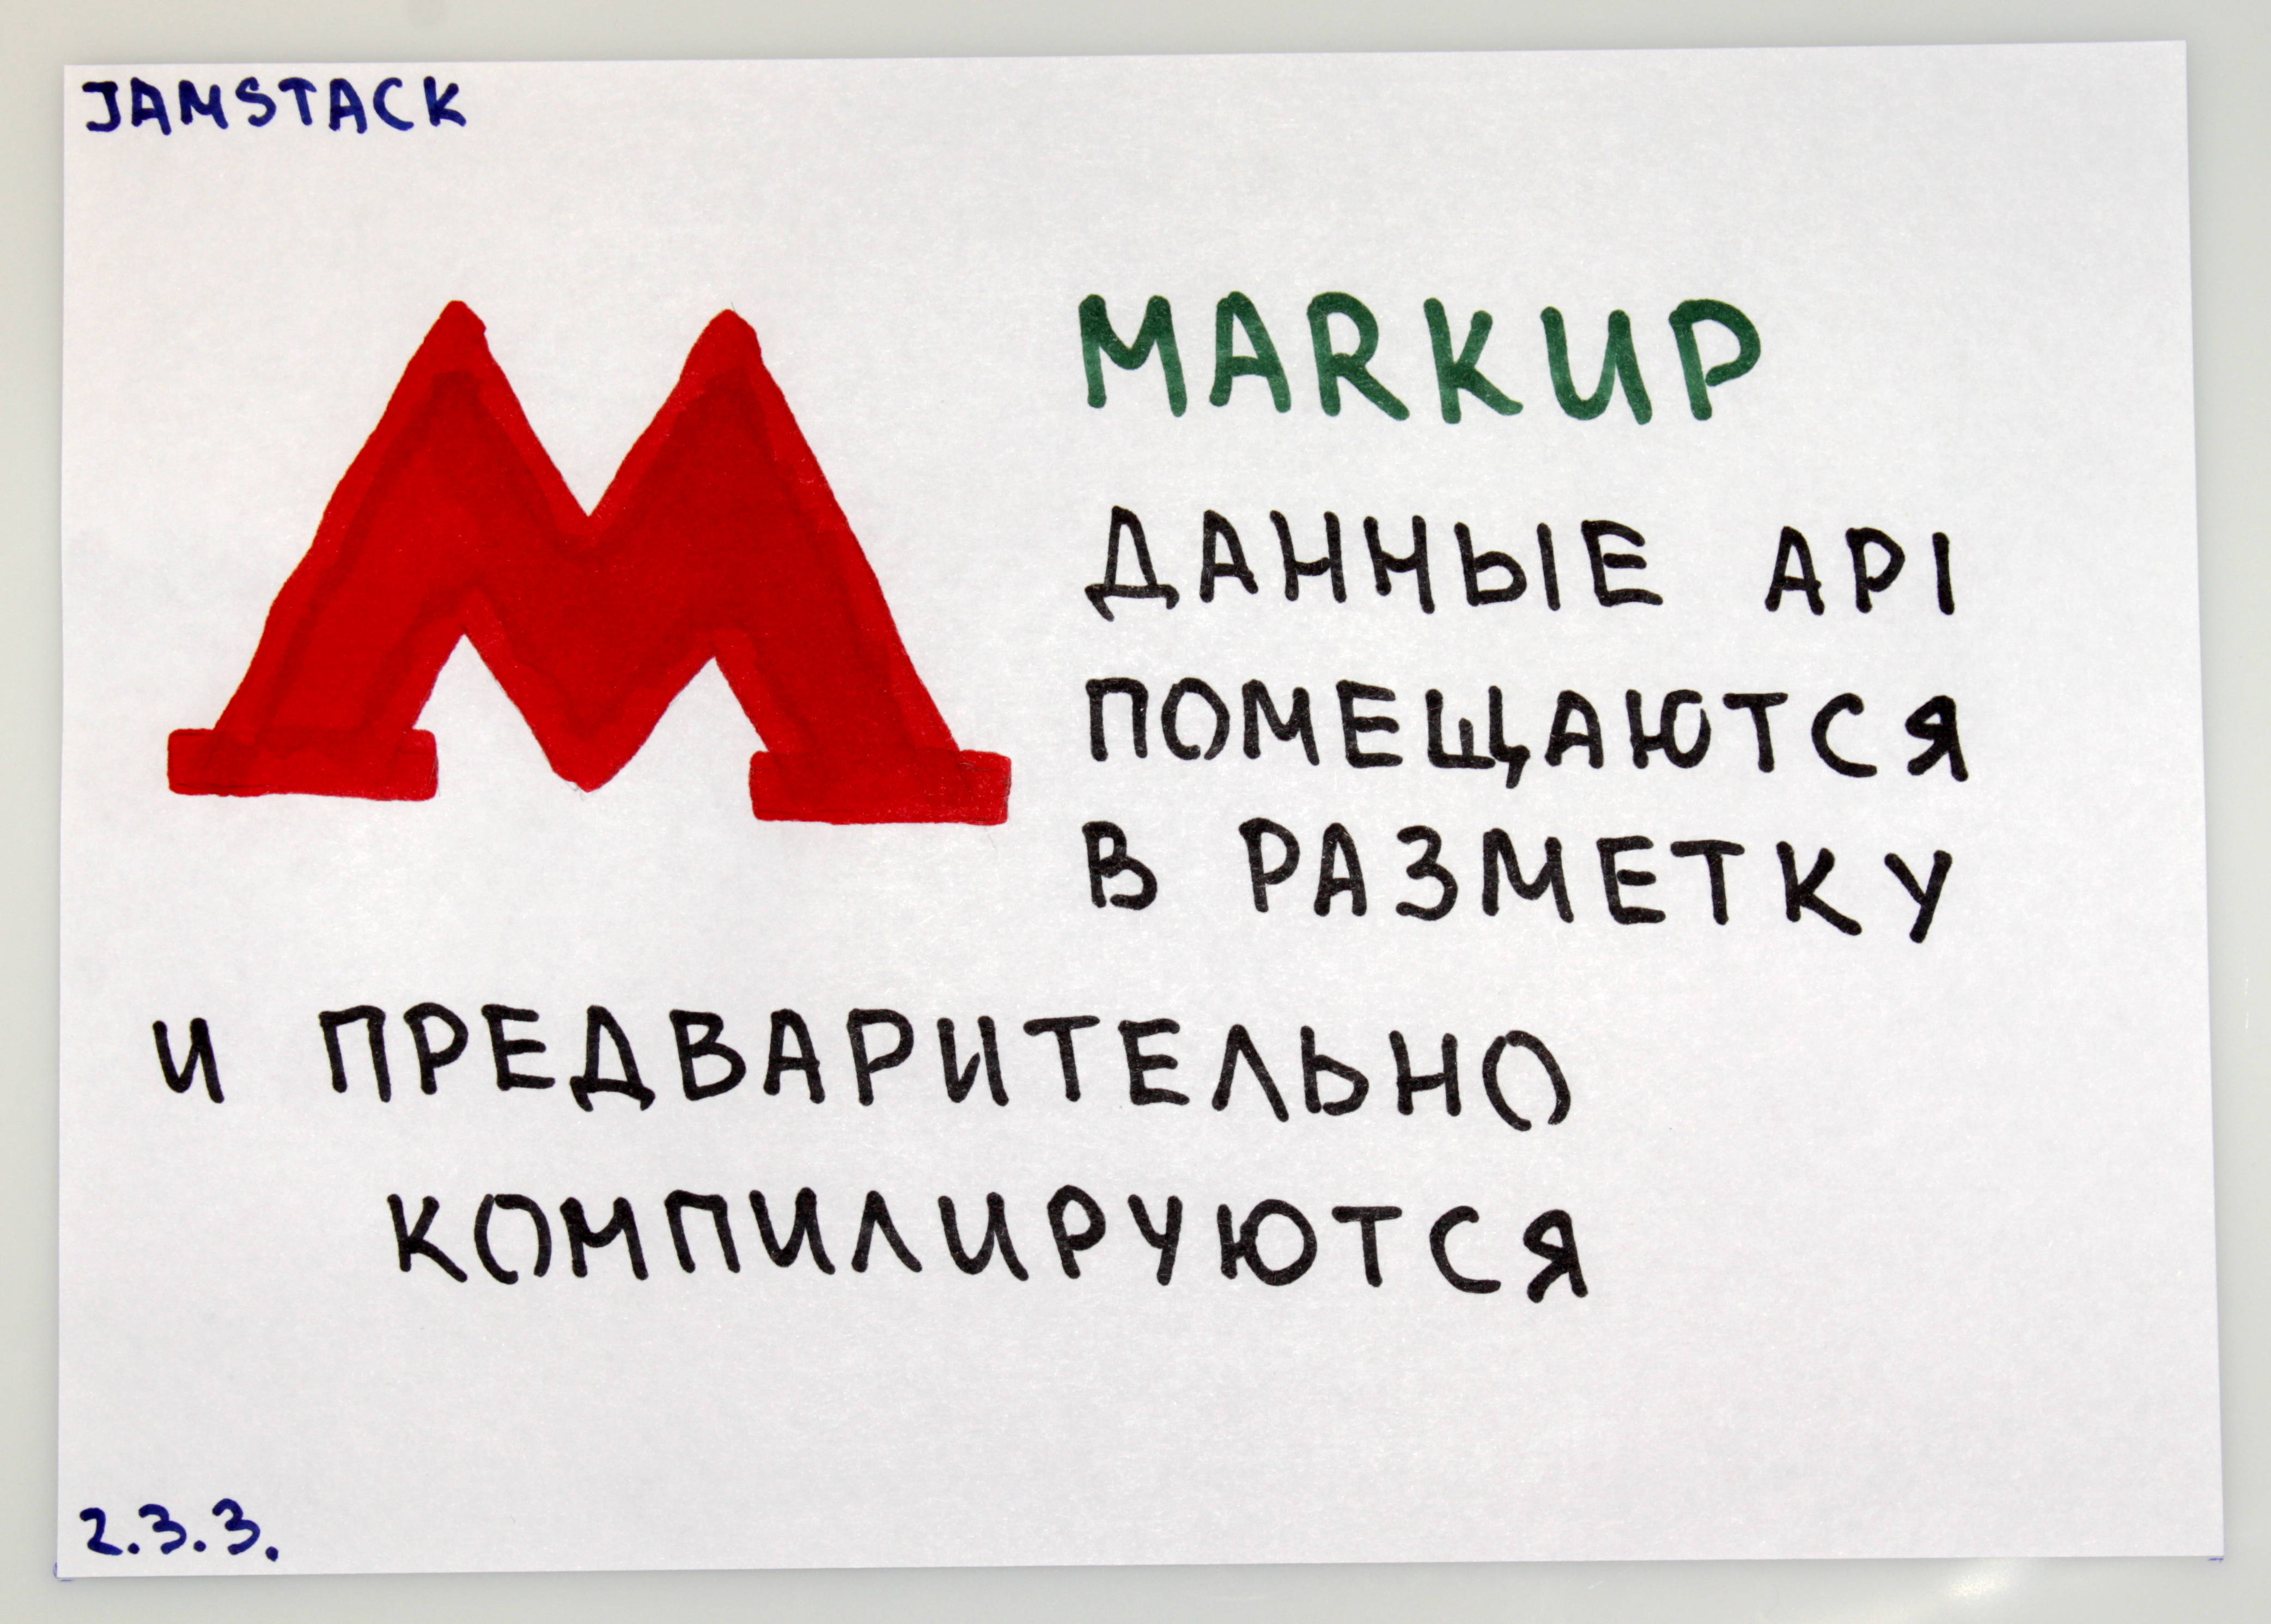 JAMSTACK
М
MARKUP
ДАННЫЕ API
ПОМЕЩАЮТСЯ
В РАЗМЕТКУ
И ПРЕДВАРИТЕЛЬНО
КОМПИЛИРУЮТСЯ
2.3.3.